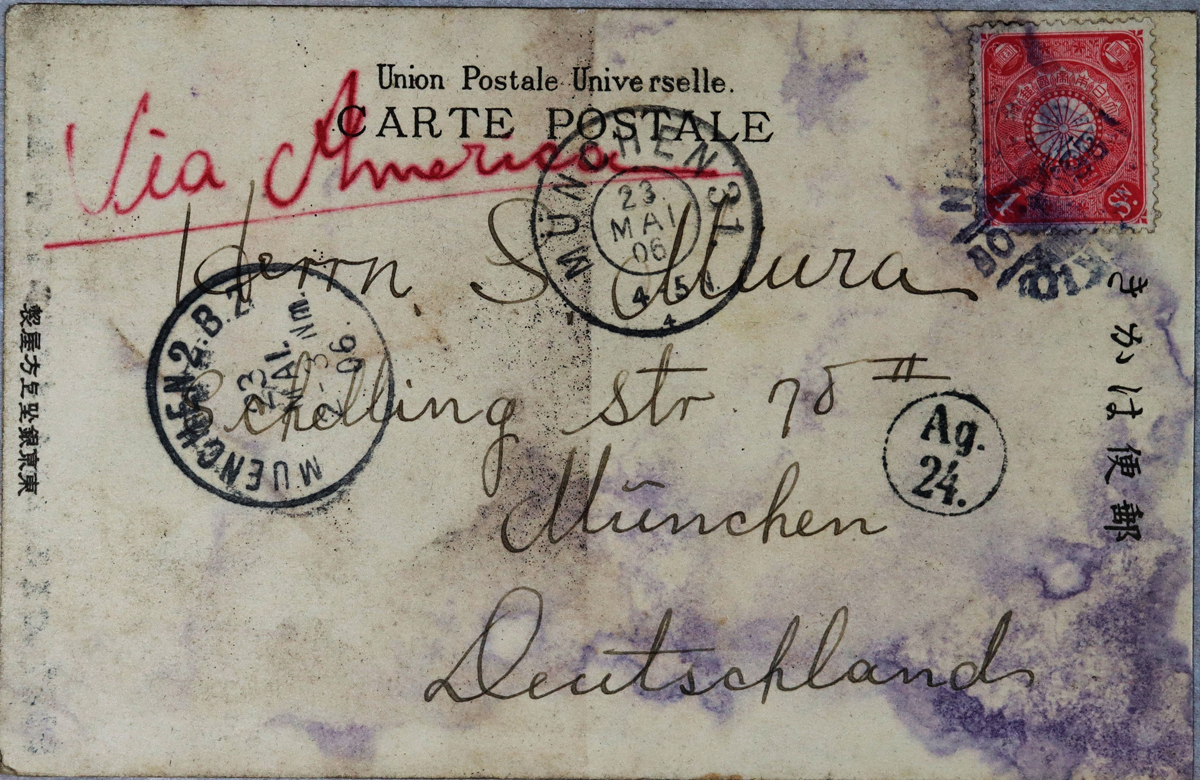 Union Postale Universelle.
CARTE POSTALE
Via America
Herrn. S. Miura
Schelling str. 78 II
München
Deutschland
MÜNCHEN 31
23
MAI
06
4 5
4
MUENCHEN 2.B.Z.
23
MAI.
Nm
06.
Ag.
24.
4 Sn.
郵便はかき
東京銀座上方屋製